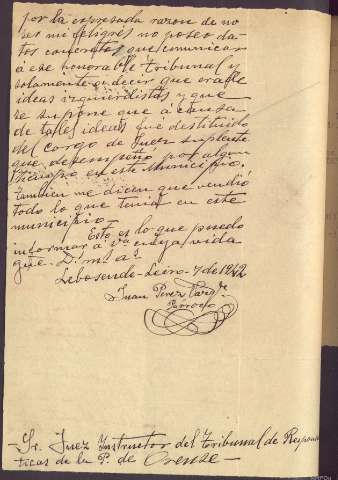 por la expresada razon de no
ser mi feligres no poseo da-
tos concretos que comunicar
á ese honorable tribunal y
solamente decir que era de
ideas izquierdistas y que
se supone que á causa
de tales ideas fué destituido
del cargo de Juez suplente
que desempeñó por algun
tiempo en este Municipio.
Tambien me dicen que vendió
todo lo que tenia en este
municipio—
Esto es lo que puedo
informar á Vª cuya vida
gue. D. mˢ aˢ
Lebosende Enero-7 de 1942
Juan Perez
Parroco
- Sr. Juez Instructor del Tribunal de Respons
ticas de la P. de Orense—